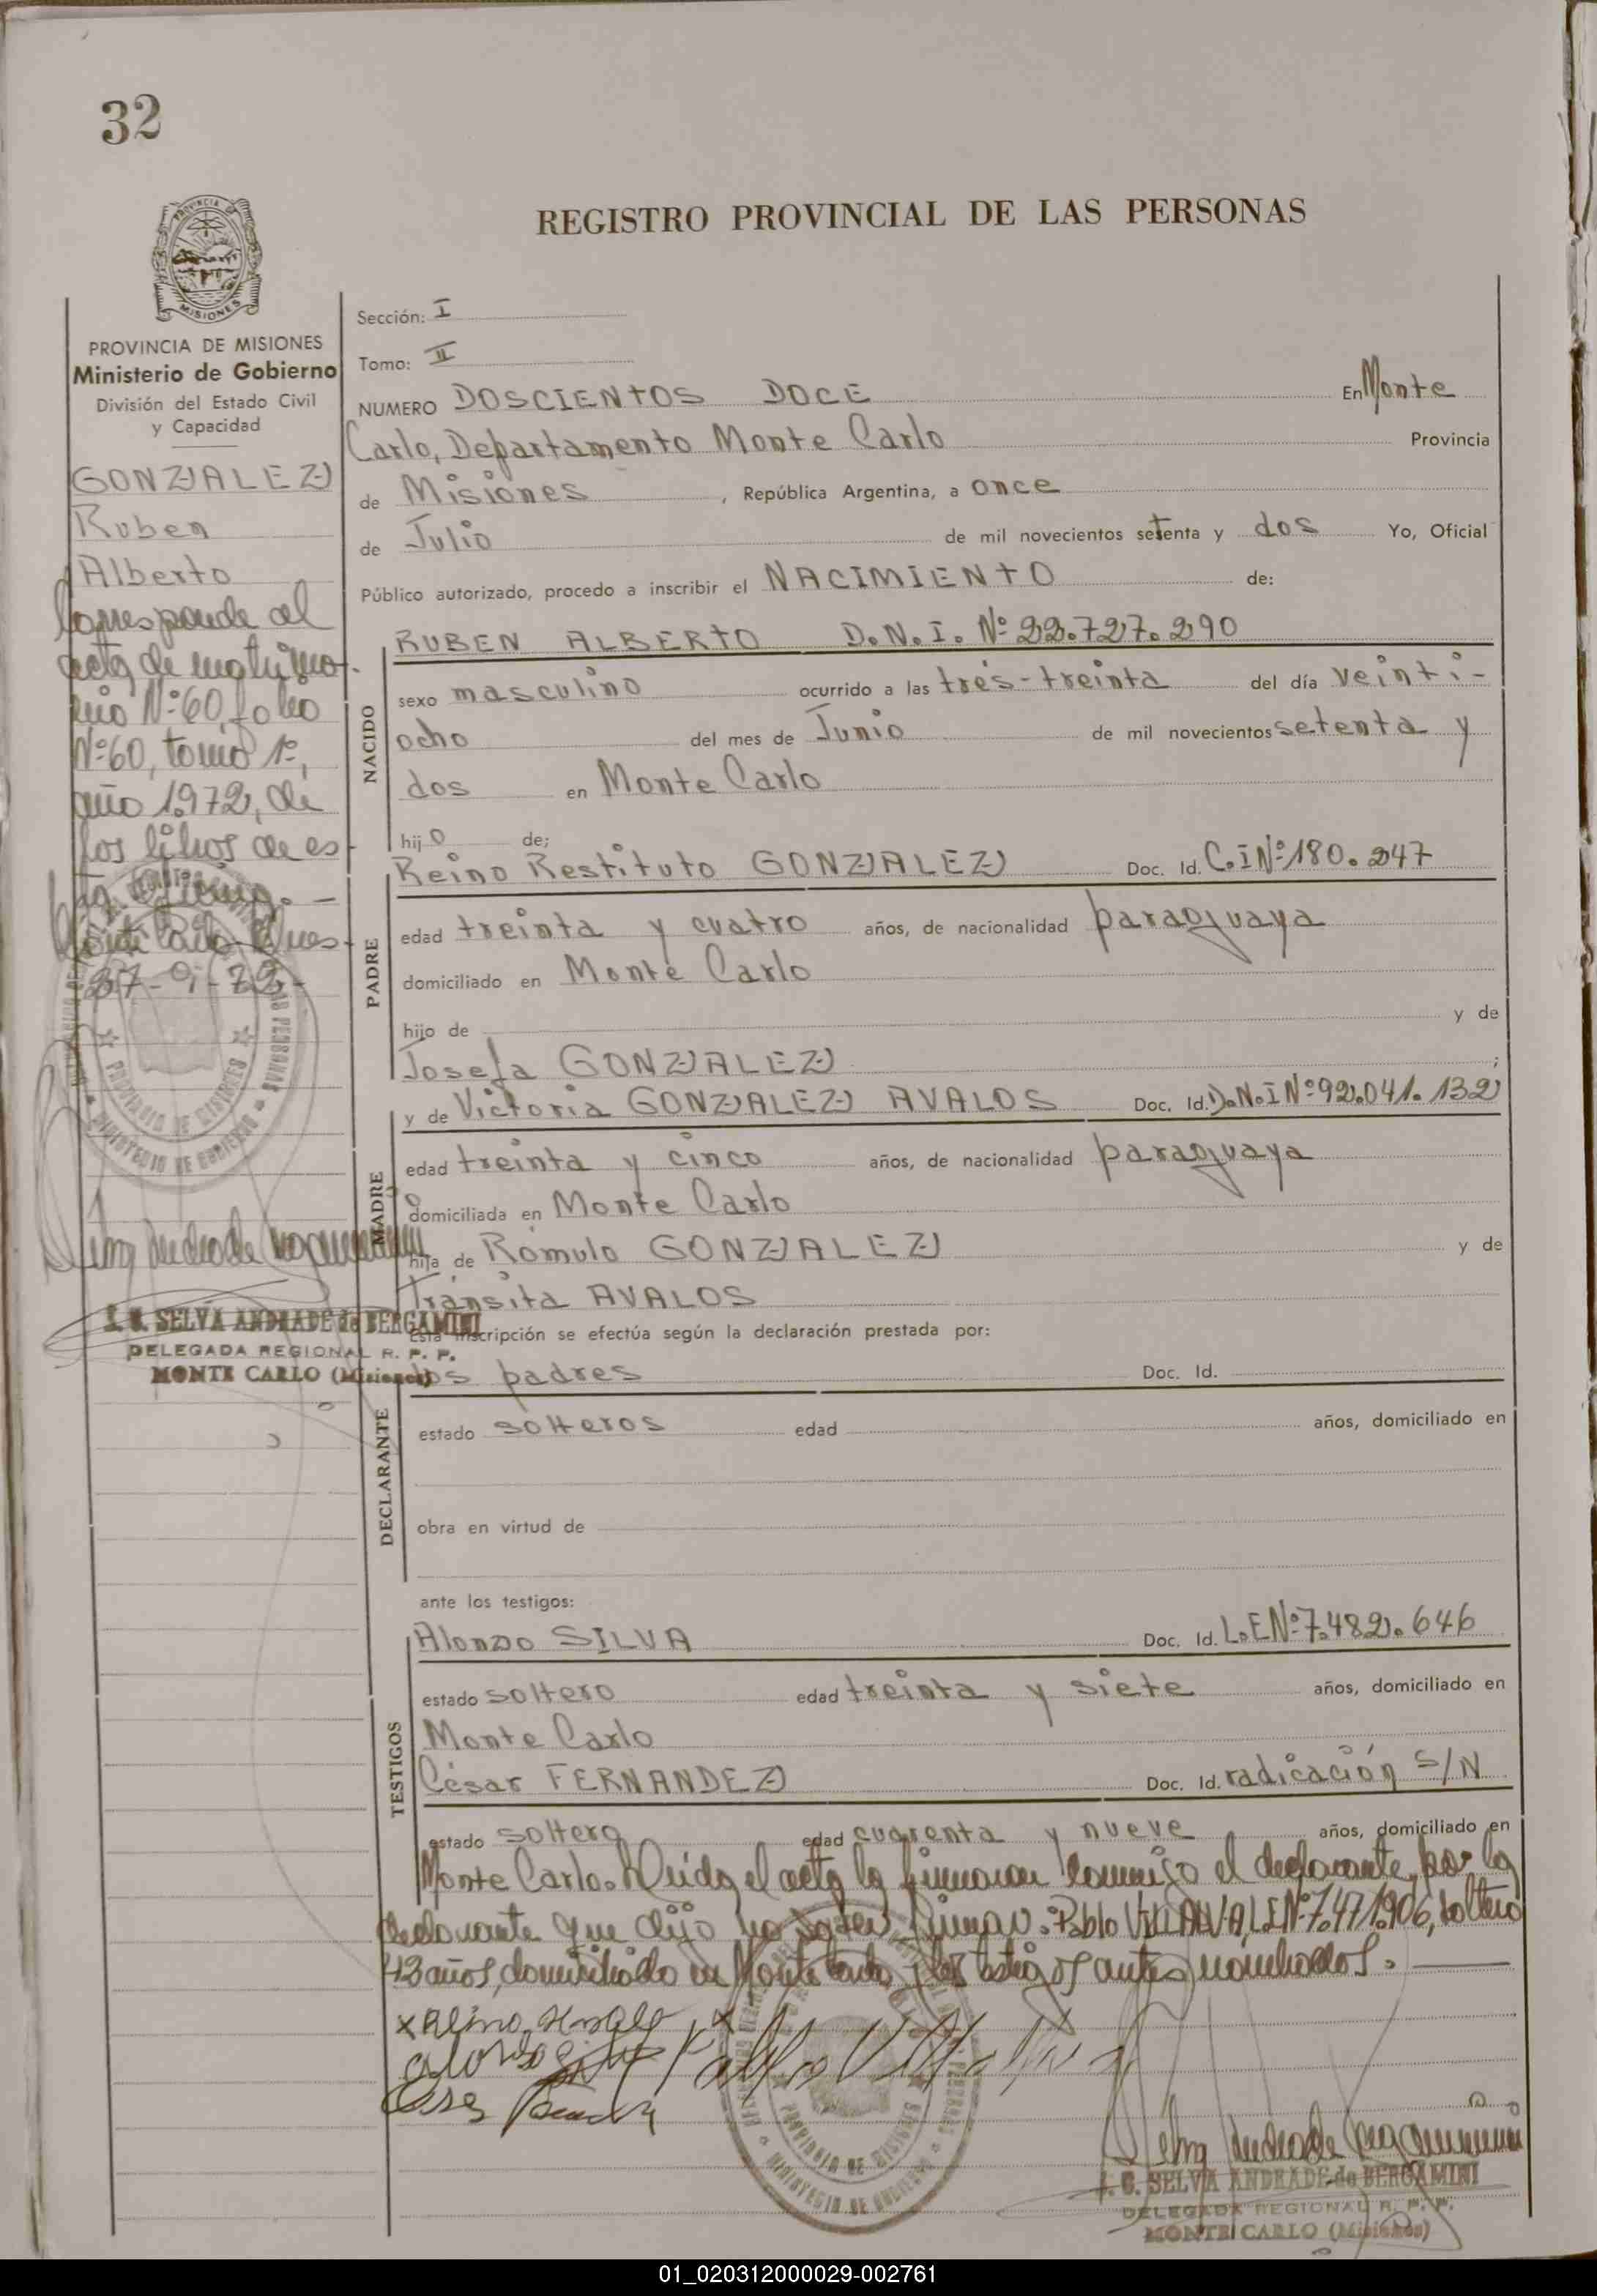 32
PROVINCIA DE
MISIONES
PROVINCIA DE MISIONES
Ministerio de Gobierno
División del Estado Civil
y Capacidad
GONZALEZ
Ruben
Alberto
Corresponde al
acta de matrimo-
nio Nº 60, folio
Nº 60, tomo 1º,
año 1.972, de
los libros de es-
ta Oficina. -
Monte Carlo, Mnes -
27-9-72.-
PROVINCIA DE MISIONES
MINISTERIO DE GOBIERNO
Selva Andrade Bergamini
J. C. SELVA ANDRADE de BERGAMINI
DELEGADA REGIONAL R. P. P.
MONTE CARLO (Misiones)
REGISTRO PROVINCIAL DE LAS PERSONAS
Sección: I
Tomo: II
NUMERO DOSCIENTOS DOCE En Monte
Carlo, Departamento Monte Carlo Provincia
de Misiones, República Argentina, a once
de Julio de mil novecientos setenta y dos Yo, Oficial
Público autorizado, procedo a inscribir el NACIMIENTO de:
NACIDO
RUBEN ALBERTO D.N.I. Nº 22.727.290
sexo masculino ocurrido a las tres-treinta del día veinti-
ocho del mes de Junio de mil novecientos setenta y
dos en Monte Carlo
hijo de;
PADRE
Reino Restituto GONZALEZ Doc. Id. C.I Nº 180.247
edad treinta y cuatro años, de nacionalidad paraguaya
domiciliado en Monte Carlo
hijo de y de
Josefa GONZALEZ ;
MADRE
y de Victoria GONZALEZ AVALOS Doc. Id. D.N.I Nº 92.041.132
edad treinta y cinco años, de nacionalidad paraguaya
domiciliada en Monte Carlo
hija de Rómulo GONZALEZ y de
Tránsita AVALOS
Esta inscripción se efectúa según la declaración prestada por:
DECLARANTE
los padres Doc. Id.
estado solteros edad años, domiciliado en
obra en virtud de
ante los testigos:
TESTIGOS
Alonzo SILVA Doc. Id. L.E Nº 7.482.646
estado soltero edad treinta y siete años, domiciliado en
Monte Carlo
César FERNANDEZ Doc. Id. radicación S/N
estado soltero edad cuarenta y nueve años, domiciliado en
Monte Carlo. Leída el acta la firmaron conmigo el declarante, por la
declarante que dijo no saber firmar: Pablo VILLALVA, L.E Nº 7.471.906, soltero
43 años, domiciliado en Monte Carlo y los testigos antes nombrados.
PROVINCIA DE MISIONES
MINISTERIO DE GOBIERNO
Pablo Villalva
Selva Andrade Bergamini
J. C. SELVA ANDRADE de BERGAMINI
DELEGADA REGIONAL R. P. P.
MONTE CARLO (Misiones)
01_020312000029-002761